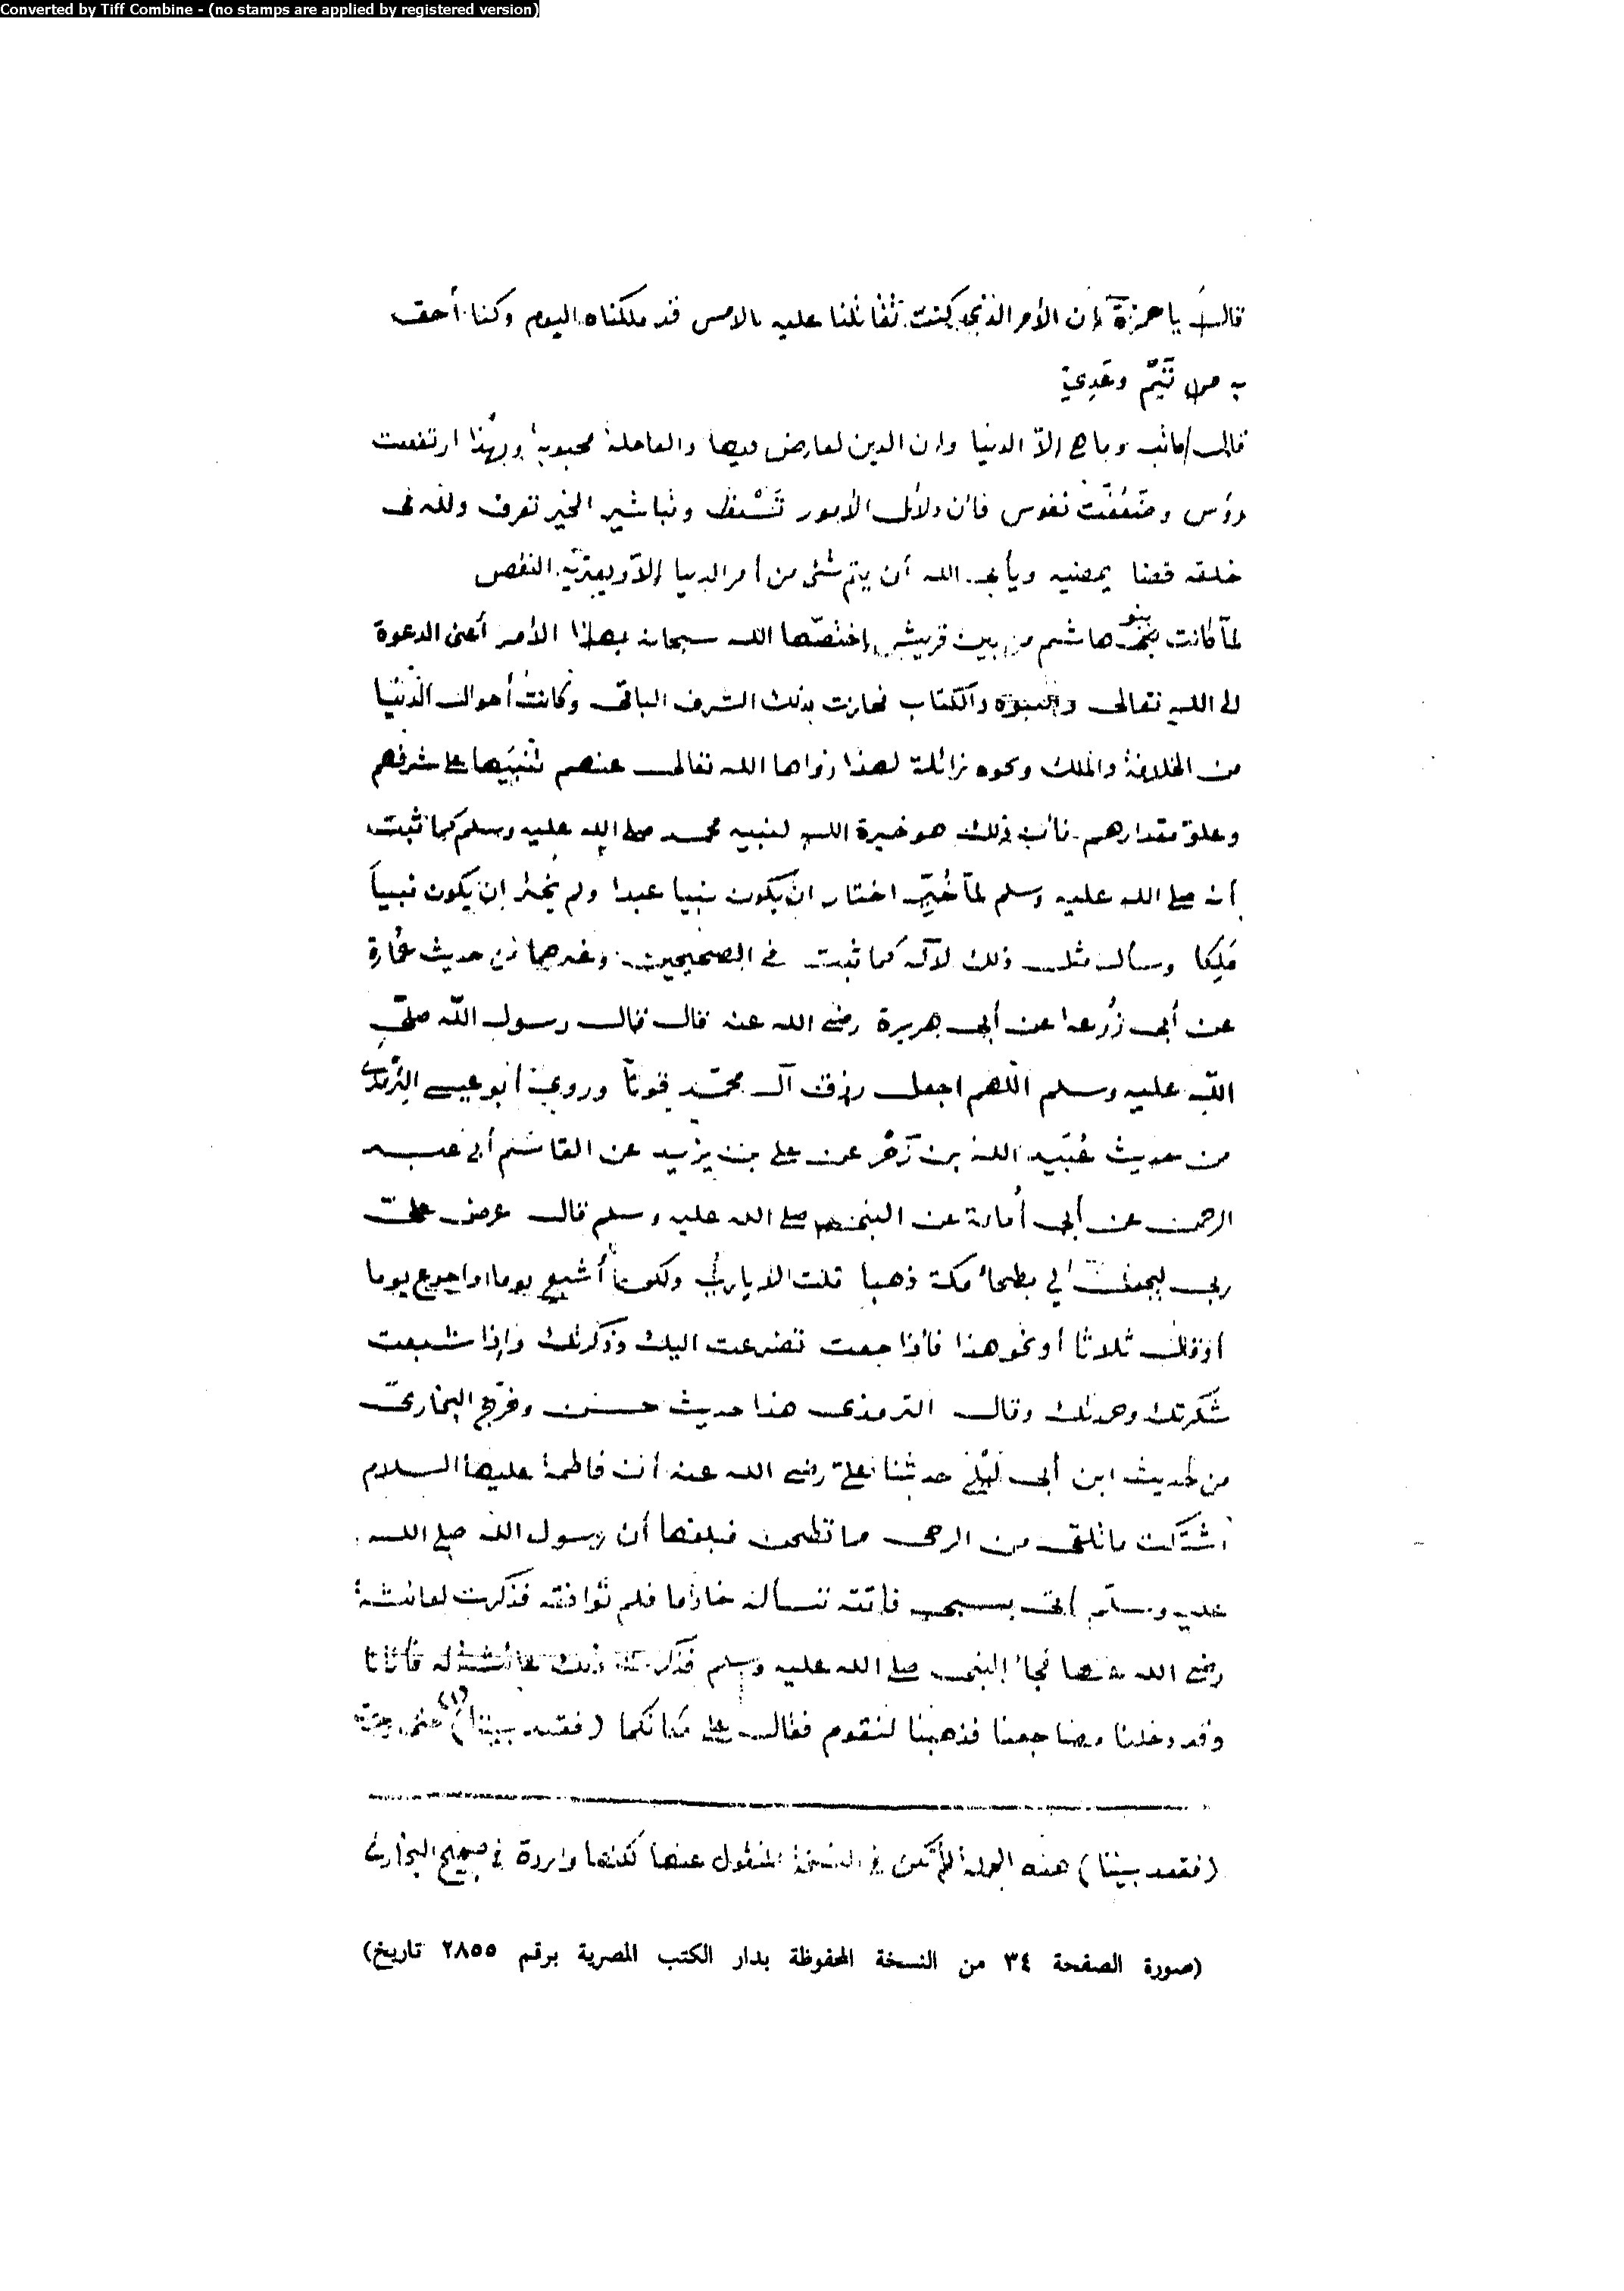 Converted by Tiff Combine - (no stamps are applied by registered version)
قال يا حمزة إن الأمر الذي كنت تقاتلنا عليه بالامس قد ملكناه اليوم وكنا أحق
به من تيم وعدي
وما هي إلا الدنيا وان الدين لعارض فيها والعاجلة محبوبة وبهذا ارتفعت
رؤس وضعفت نفوس فان دلائل الأمور تسبق وتباشير الخير تعرف ولله فى
خلقه قضا يمضيه ويأبى الله أن يتم شئ من أمر الدنيا إلا ويعتريه النقص
لما كانت بنو هاشم من بين قريش إختصها الله سبحانه بهذا الأمر أعنى الدعوة
الى الله تعالى والنبوة والكتاب فحازت بذلك الشرف الباقى وكانت أحوال الدنيا
من الخلافة والملك ونحوه زائلة لهذا زواها الله تعالى عنهم تنبيها على شرفهم
وعلو مقدارهم فان ذلك هو خيرة الله لنبيه محمد صلى الله عليه وسلم كما ثبت
أنه صلى الله عليه وسلم لما خير اختار ان يكون نبيا عبدا ولم يختر ان يكون نبياً
ملكا وسأل مثل ذلك لآله كما ثبت في الصحيحين وغيرهما من حديث عمارة
عن أبى زرعة عن أبى هريرة رضى الله عنه قال قال رسول الله صلى
الله عليه وسلم اللهم اجعل رزق آل محمد قوتاً وروى أبو عيسى الترمذى
من حديث عبيد الله بن زحر عن على بن يزيد عن القاسم أبى عبد
الرحمن عن أبى أمامة عن النبى صلى الله عليه وسلم قال عرض على
ربى ليجعل لي بطحأ مكة ذهبا قلت لا يارب ولكن أشبع يوما واجوع يوما
أوقال ثلاثا أو نحو هذا فاذا جعت تضرعت اليك وذكرتك وإذا شبعت
شكرتك وحمدتك وقال الترمذى هذا حديث حسن وخرج البخارى
من حديث ابن أبى ليلى حدثنا على رضى الله عنه أن فاطمة عليها السلام
اشتكت ما تلقى من الرحى مما تطحن فبلغها أن رسول الله صلى الله
عليه وسلم أتى بسبى فاتته تسأله خادما فلم توافقه فذكرت لعائشة
رضى الله عنها فجأ النبى صلى الله عليه وسلم فذكرت ذلك عائشة له فأتانا
وقد دخلنا مضاجعنا فذهبنا لنقوم فقال على مكانكما (فقعد بيننا) (١) حتى وجدت
(فقعد بيننا) هذه الجملة لم تكن في النسخة المنقول عنها لكنها واردة في صحيح البخارى
(صورة الصفحة ٣٤ من النسخة المحفوظة بدار الكتب المصرية برقم ٢٨٥٥ تاريخ)